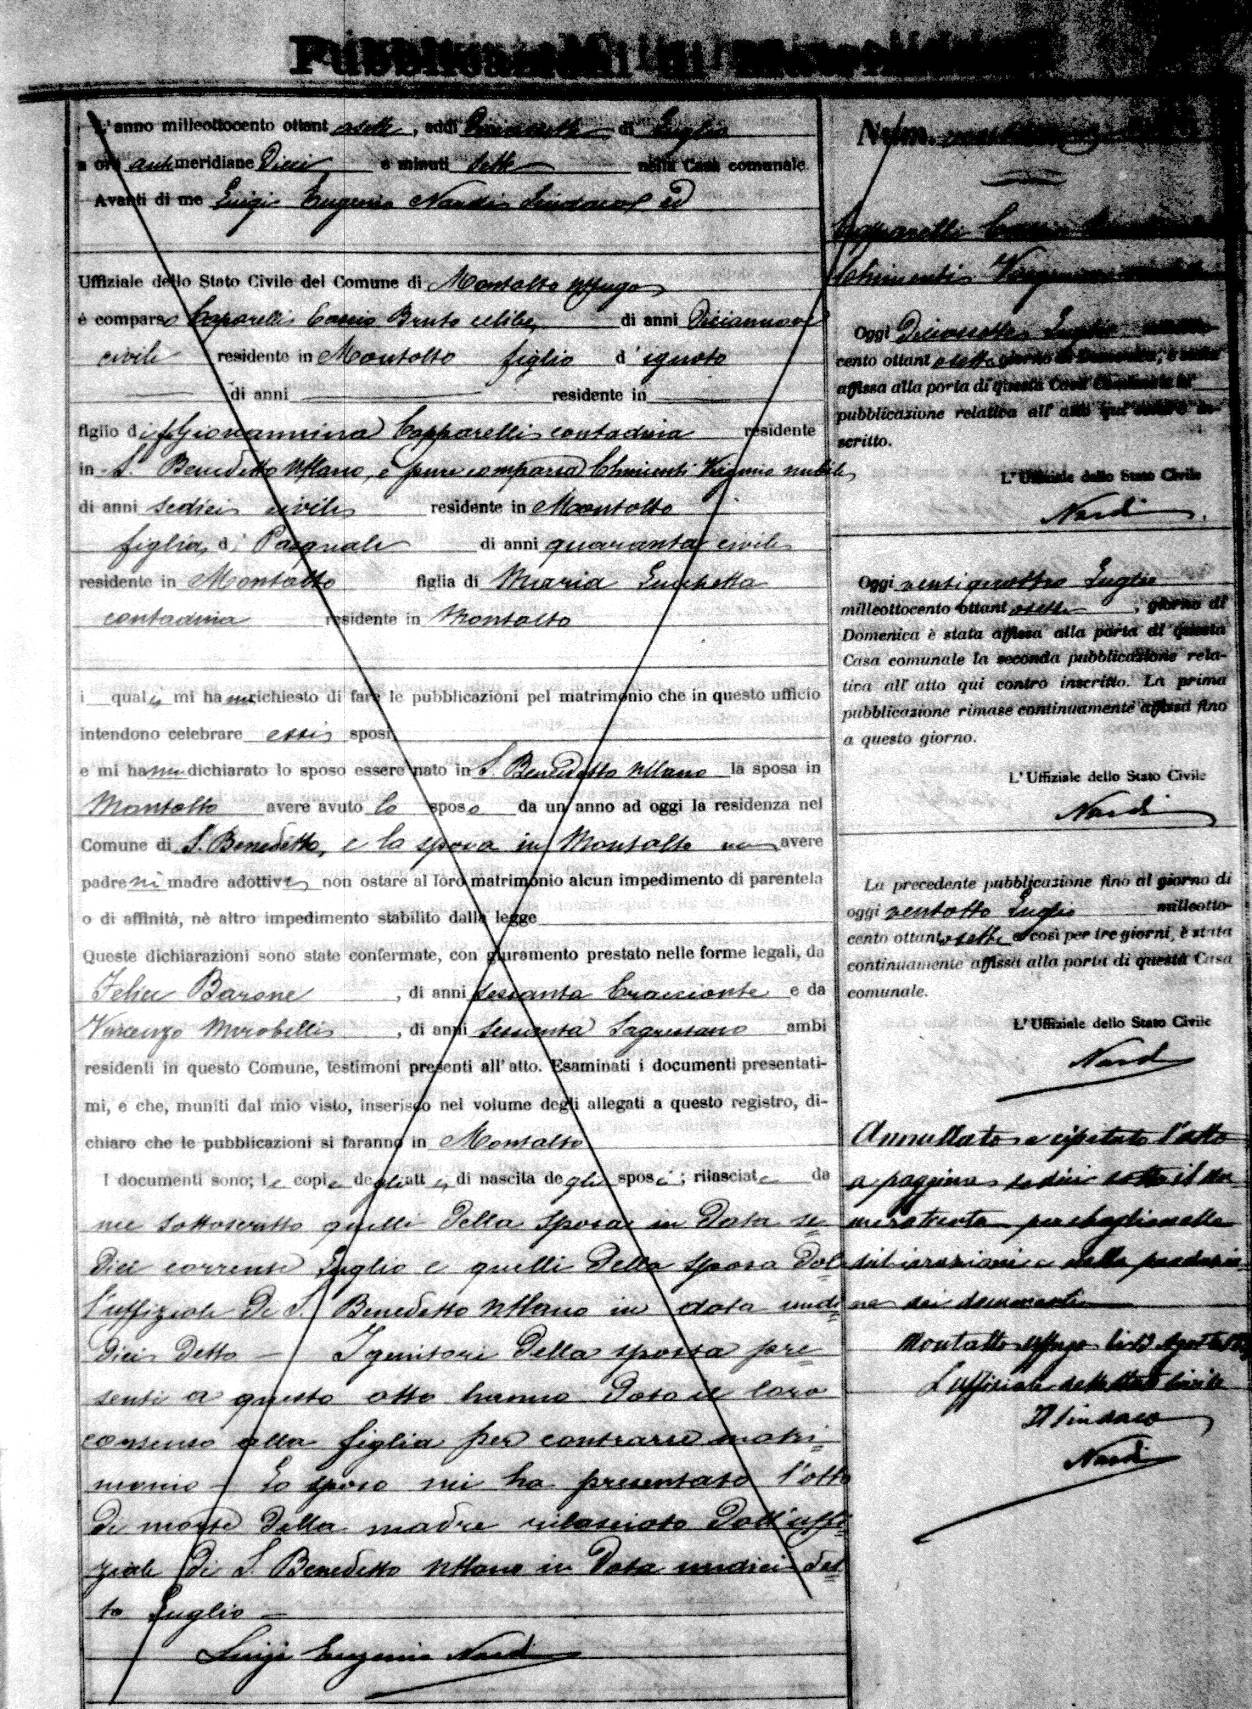 Pubblicazioni di
L'anno milleottocento ottant asette, addì di Luglio
a ore antimeridiane Dieci e minuti sette nella Casa comunale.
Avanti di me Luigi Eugenio Nardi Sindaco ed
Uffiziale dello Stato Civile del Comune di Montalto Uffugo
è comparso Capparelli Cassio Bruto celibe, di anni Diciannove
civile residente in Montalto figlio d' ignoto
di anni residente in
figlio di fu Giovannina Capparelli contadina residente
in S. Benedetto Ullano, e pure comparsa Chimenti Virginia nubile
di anni sedici civile residente in Montalto
figlia d' Pasquale di anni quaranta civile
residente in Montalto figlia di Maria Luchetta
contadina residente in Montalto
i quali mi hanno richiesto di fare le pubblicazioni pel matrimonio che in questo ufficio
intendono celebrare essi sposi
e mi hanno dichiarato lo sposo essere nato in S. Benedetto Ullano la sposa in
Montalto avere avuto lo sposo da un anno ad oggi la residenza nel
Comune di S. Benedetto, e la sposa in Montalto non avere
padre nè madre adottivi, non ostare al loro matrimonio alcun impedimento di parentela
o di affinità, nè altro impedimento stabilito dalla legge
Queste dichiarazioni sono state confermate, con giuramento prestato nelle forme legali, da
Felice Barone, di anni sessanta bracciante e da
Vincenzo Mirabelli, di anni sessanta Sagrestano ambi
residenti in questo Comune, testimoni presenti all'atto. Esaminati i documenti presentati-
mi, e che, muniti dal mio visto, inserisco nel volume degli allegati a questo registro, di-
chiaro che le pubblicazioni si faranno in Montalto
I documenti sono; le copie degli atti di nascita degli sposi; rilasciate da
me sottoscritto quelli della sposa in data se
dici corrente Luglio e quelli della sposa dal
l'uffiziale di S. Benedetto Ullano in data undi
dici detto — I genitori della sposa pre
senti a questo atto hanno dato il loro
consenso alla figlia per contrarre matri
monio — Lo sposo mi ha presentato l'atto
di morte della madre rilasciato dall'uffi
ziale di S. Benedetto Ullano in data undici det
to Luglio —
Luigi Eugenio Nardi
Num.
Capparelli Cassio
Chimenti Virginia
Oggi Diciassette Luglio milleotto-
cento ottant asette giorno di Domenica, è stata
affissa alla porta di questa Casa Comunale la
pubblicazione relativa all'atto qui contro in-
scritto.
L'Uffiziale dello Stato Civile
Nardi
Oggi ventiquattro Luglio
milleottocento ottant asette, giorno di
Domenica è stata affissa alla porta di questa
Casa comunale la seconda pubblicazione rela-
tiva all'atto qui contro inscritto. La prima
pubblicazione rimase continuamente affissa fino
a questo giorno.
L'Uffiziale dello Stato Civile
Nardi
La precedente pubblicazione fino al giorno di
oggi ventotto Luglio milleotto-
cento ottant asette e così per tre giorni, è stata
continuamente affissa alla porta di questa Casa
comunale.
L'Uffiziale dello Stato Civile
Nardi
Annullato e ripetuto l'atto
a paggina sedici sotto il nu
mero trenta per sbaglio nelle
dichiarazioni e della produzio
ne dei documenti
Montalto Uffugo li 13 Agosto
L'uffiziale dello Stato Civile
Il Sindaco
Nardi